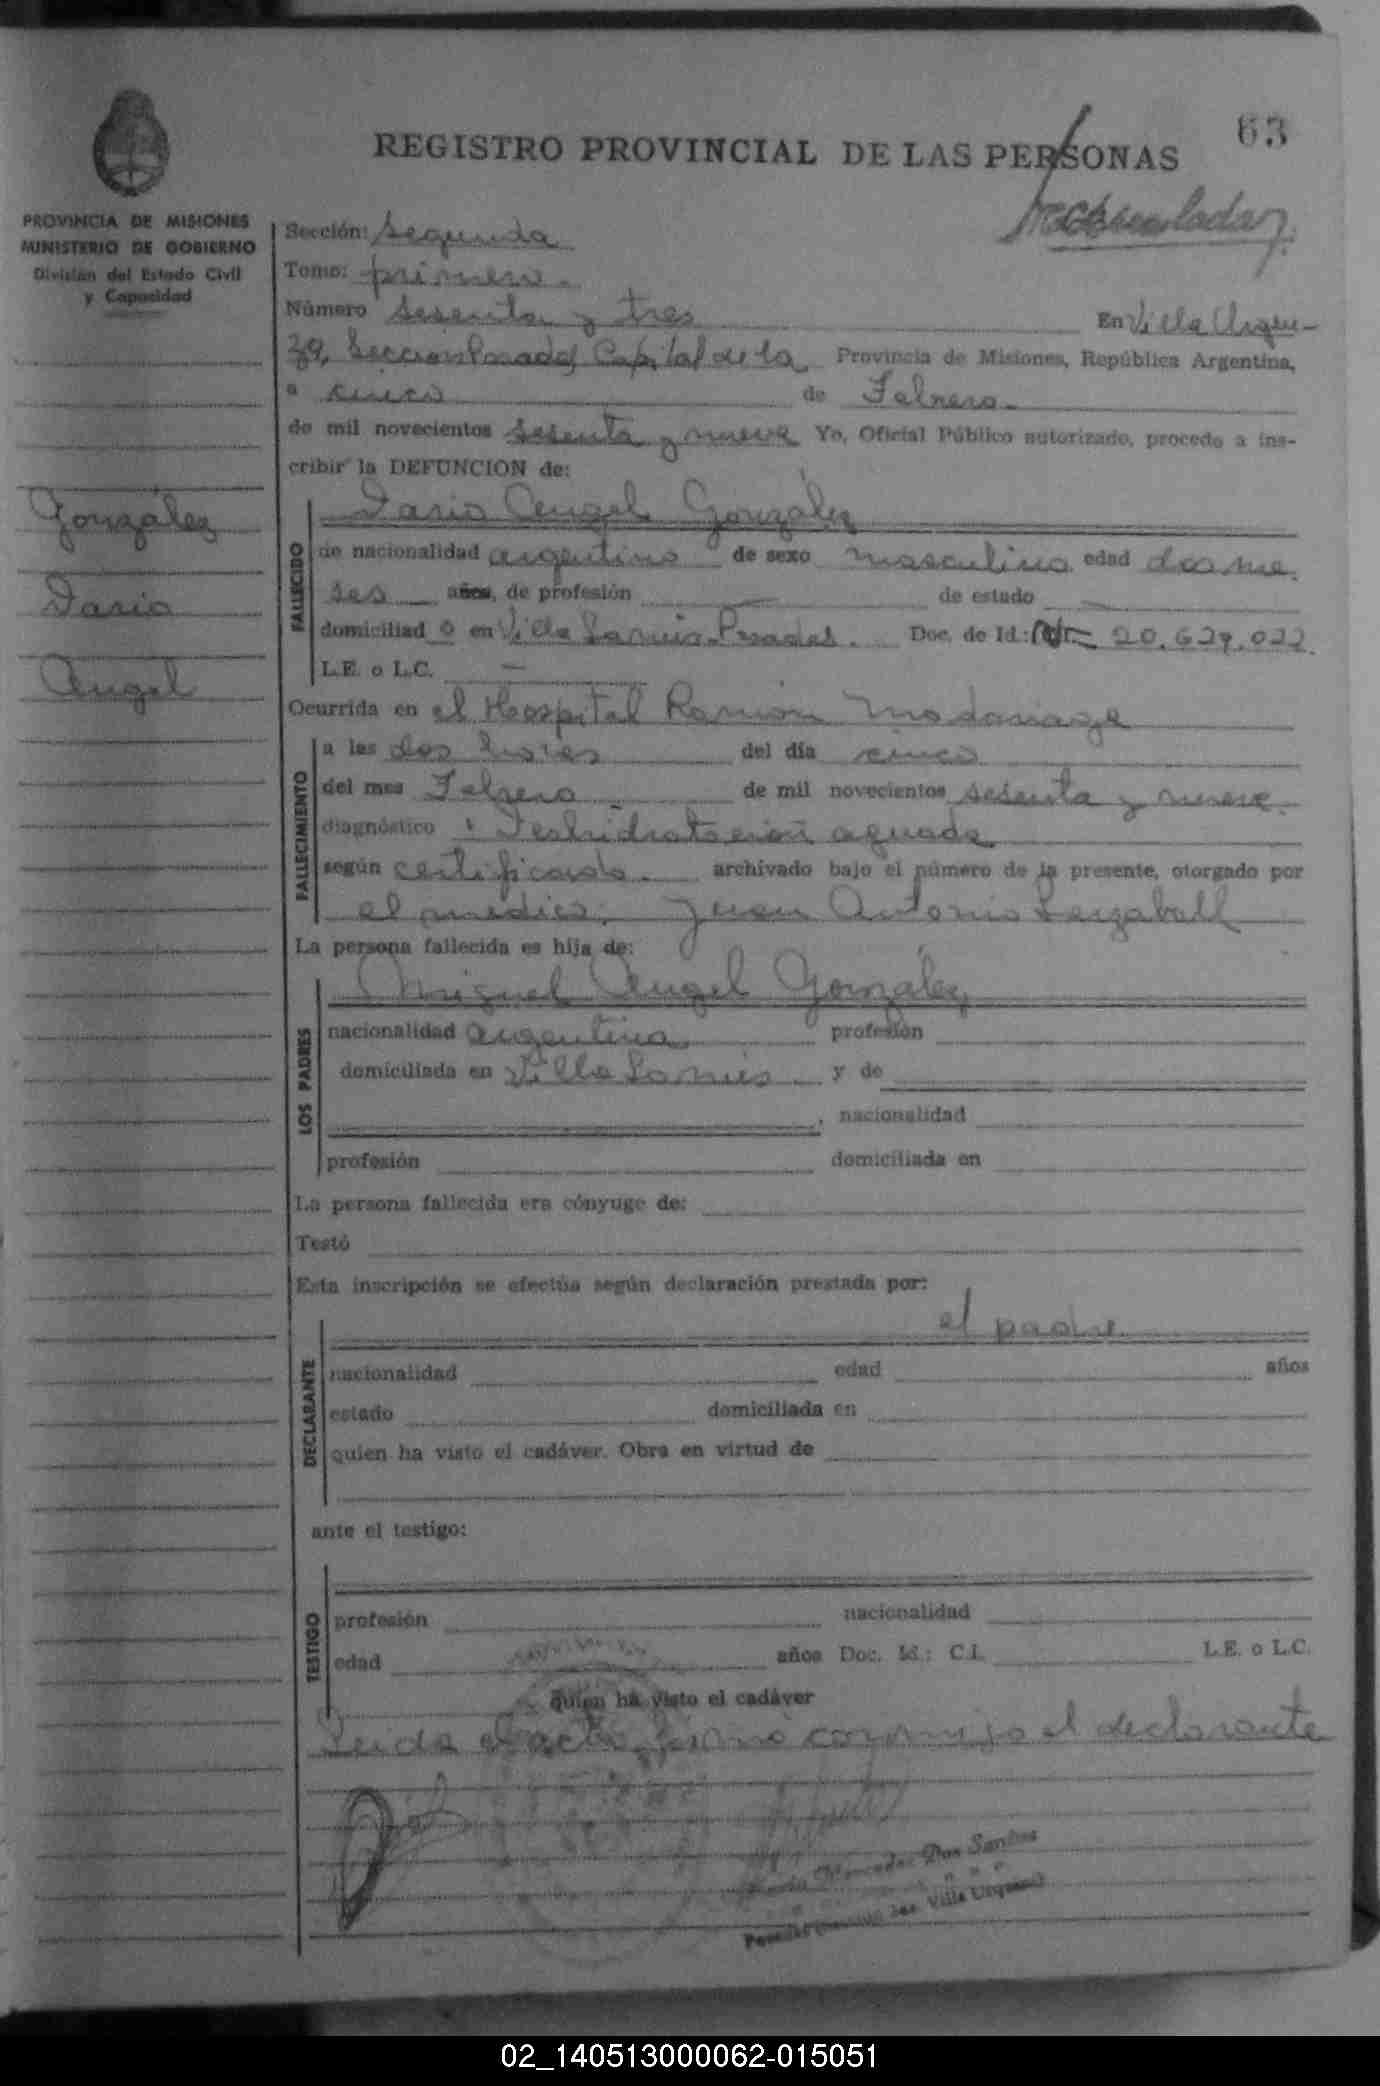 63
REGISTRO PROVINCIAL DE LAS PERSONAS
PROVINCIA DE MISIONES
MINISTERIO DE GOBIERNO
División del Estado Civil
y Capacidad
Sección: Segunda
Tomo: primero.
Número sesenta y tres En Villa Urqui-
za, Seccion Posadas Capital de la Provincia de Misiones, República Argentina,
a cinco de Febrero.
de mil novecientos sesenta y nueve Yo, Oficial Público autorizado, procedo a ins-
cribir la DEFUNCION de:
González
Dario
Angel
FALLECIDO
Dario Angel González
de nacionalidad argentino de sexo masculino edad dos me
ses años, de profesión — de estado —
domiciliad o en Villa Posadas. Doc. de Id.: 20.629.022.
L.E. o L.C. —
Ocurrida en el Hospital Ramón Madariaga
FALLECIMIENTO
a las dos horas del día cinco
del mes Febrero de mil novecientos sesenta y nueve.
diagnóstico : Deshidratación aguada
según certificado. archivado bajo el número de la presente, otorgado por
el medico: Juan Antonio
La persona fallecida es hija de:
LOS PADRES
Miguel Angel González
nacionalidad argentina profesión
domiciliada en Villa y de
nacionalidad
profesión domiciliada en
La persona fallecida era cónyuge de:
Testó
Esta inscripción se efectúa según declaración prestada por:
DECLARANTE
el padre
nacionalidad edad años
estado domiciliada en
quien ha visto el cadáver. Obra en virtud de
ante el testigo:
TESTIGO
profesión nacionalidad
edad años Doc. Id.: C.I. L.E. o L.C.
quien ha visto el cadáver
Leida el acta, firmó conmigo el declarante
Mercedes Dos Santos
Villa Urquiza
02_140513000062-015051